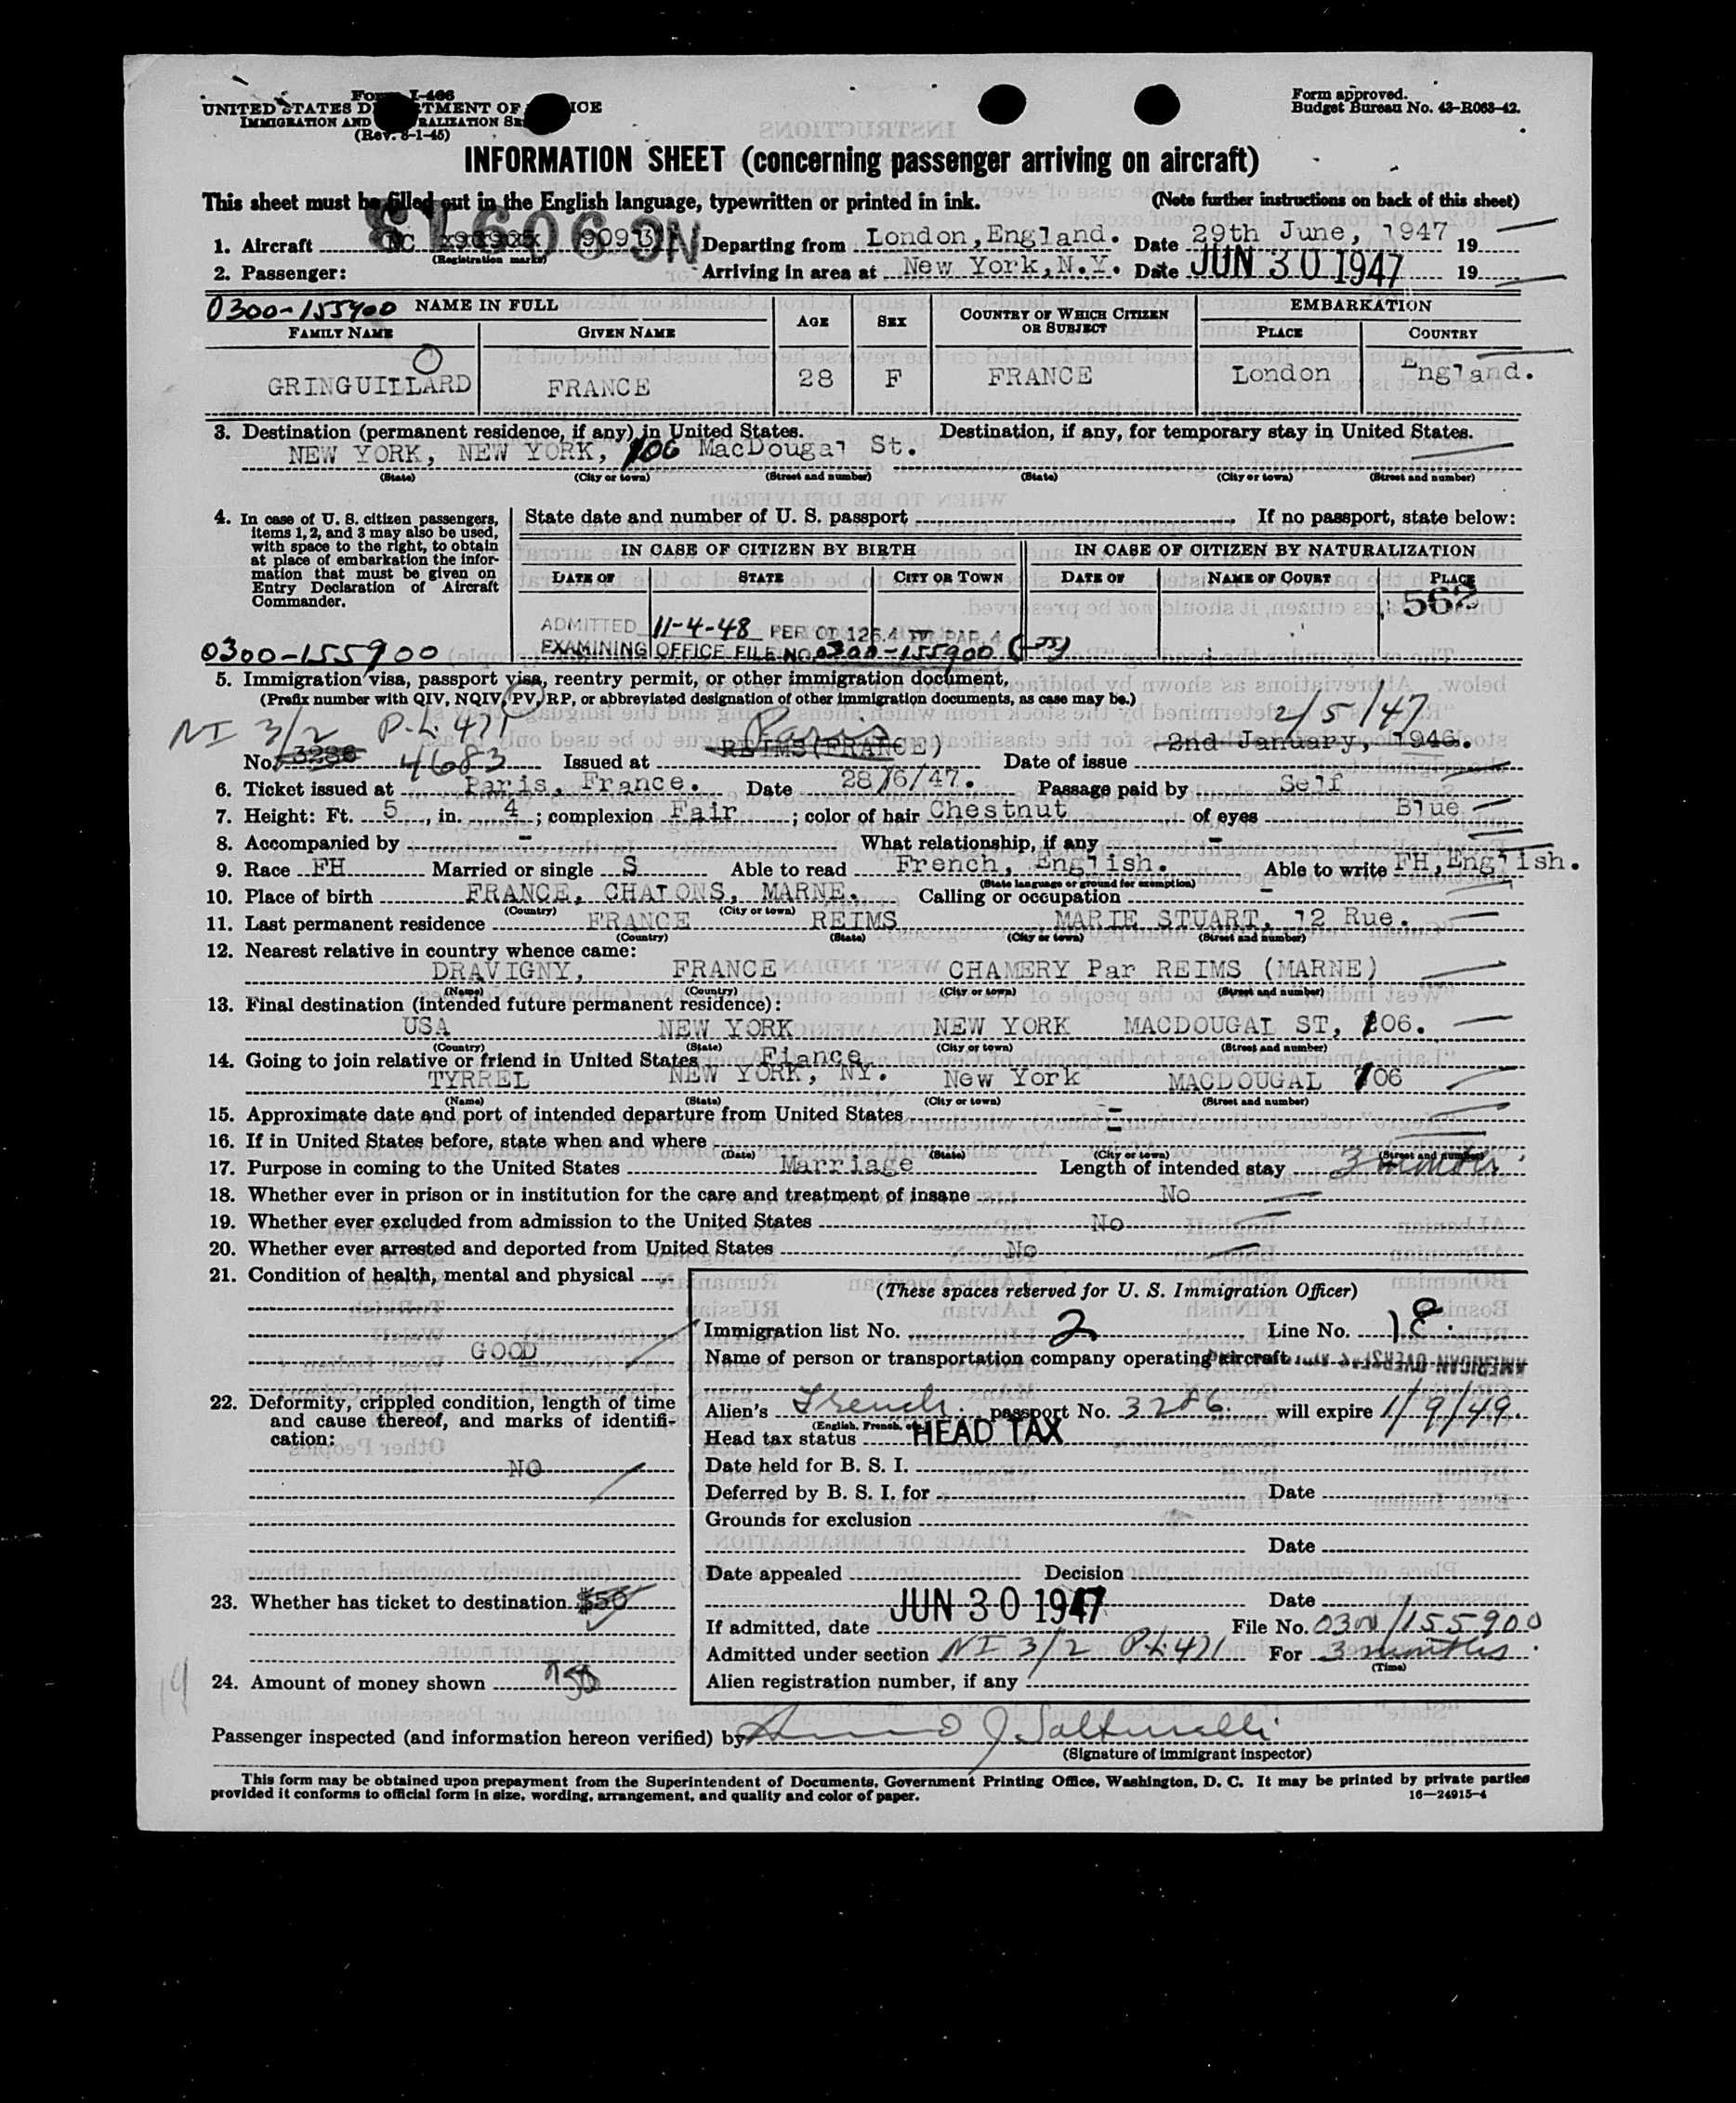 Form I-466
UNITED STATES DEPARTMENT OF JUSTICE
IMMIGRATION AND NATURALIZATION SERVICE
(Rev. 8-1-45)
Form approved.
Budget Bureau No. 43-R063-42.
INFORMATION SHEET (concerning passenger arriving on aircraft)
This sheet must be filled out in the English language, typewritten or printed in ink. (Note further instructions on back of this sheet)
1. Aircraft NC 90913 Departing from London, England. Date 29th June, 1947 19
(Registration marks)
2. Passenger: Arriving in area at New York, N.Y. Date JUN 30 1947 19
0300-155900 NAME IN FULL AGE SEX COUNTRY OF WHICH CITIZEN OR SUBJECT EMBARKATION
FAMILY NAME GIVEN NAME PLACE COUNTRY
GRINGUILLARD FRANCE 28 F FRANCE London England.
3. Destination (permanent residence, if any) in United States. Destination, if any, for temporary stay in United States.
NEW YORK, NEW YORK, 106 MacDougal St.
(State) (City or town) (Street and number) (State) (City or town) (Street and number)
4. In case of U. S. citizen passengers, items 1, 2, and 3 may also be used, with space to the right, to obtain at place of embarkation the information that must be given on Entry Declaration of Aircraft Commander.
State date and number of U. S. passport . If no passport, state below:
IN CASE OF CITIZEN BY BIRTH IN CASE OF CITIZEN BY NATURALIZATION
DATE OF STATE CITY OR TOWN DATE OF NAME OF COURT PLACE
562
ADMITTED 11-4-48 PER OI 126.4 PAR. 4
0300-155900 EXAMINING OFFICE FILE NO. 0300-155900
5. Immigration visa, passport visa, reentry permit, or other immigration document,
(Prefix number with QIV, NQIV, PV, RP, or abbreviated designation of other immigration documents, as case may be.)
NI 3/2 P.L. 471 Paris 2/5/47
No. 3286 4683 Issued at REIMS (FRANCE) Date of issue 2nd January, 1946.
6. Ticket issued at Paris, France. Date 28/6/47. Passage paid by Self
7. Height: Ft. 5, in. 4; complexion Fair; color of hair Chestnut of eyes Blue
8. Accompanied by - What relationship, if any -
9. Race FH Married or single S Able to read French, English. Able to write FH, English.
(State language or ground for exemption)
10. Place of birth FRANCE, CHALONS, MARNE. Calling or occupation -
(Country) (City or town)
11. Last permanent residence FRANCE REIMS MARIE STUART, 12 Rue.
(Country) (State) (City or town) (Street and number)
12. Nearest relative in country whence came:
DRAVIGNY, FRANCE CHAMERY Par REIMS (MARNE)
(Name) (Country) (City or town) (Street and number)
13. Final destination (intended future permanent residence):
USA NEW YORK NEW YORK MACDOUGAL ST, 106.
(Country) (State) (City or town) (Street and number)
14. Going to join relative or friend in United States Fiance
TYRREL NEW YORK, NY. New York MACDOUGAL 106
(Name) (State) (City or town) (Street and number)
15. Approximate date and port of intended departure from United States -
16. If in United States before, state when and where -
(Date) (State) (City or town) (Street and number)
17. Purpose in coming to the United States Marriage Length of intended stay 3 months
18. Whether ever in prison or in institution for the care and treatment of insane No
19. Whether ever excluded from admission to the United States No
20. Whether ever arrested and deported from United States No
21. Condition of health, mental and physical
GOOD
22. Deformity, crippled condition, length of time and cause thereof, and marks of identification:
NO
23. Whether has ticket to destination $50
24. Amount of money shown
(These spaces reserved for U. S. Immigration Officer)
Immigration list No. 2 Line No. 18
Name of person or transportation company operating aircraft AMERICAN OVERSEAS
Alien's French passport No. 3286 will expire 1/9/49.
(English, French, etc.)
Head tax status HEAD TAX
Date held for B. S. I.
Deferred by B. S. I. for Date
Grounds for exclusion
Date
Date appealed Decision
Date
If admitted, date JUN 30 1947 File No. 0300/155900
Admitted under section NI 3/2 P.L. 471 For 3 months.
(Time)
Alien registration number, if any
Passenger inspected (and information hereon verified) by
(Signature of immigrant inspector)
This form may be obtained upon prepayment from the Superintendent of Documents, Government Printing Office, Washington, D. C. It may be printed by private parties
provided it conforms to official form in size, wording, arrangement, and quality and color of paper. 16—24915-4